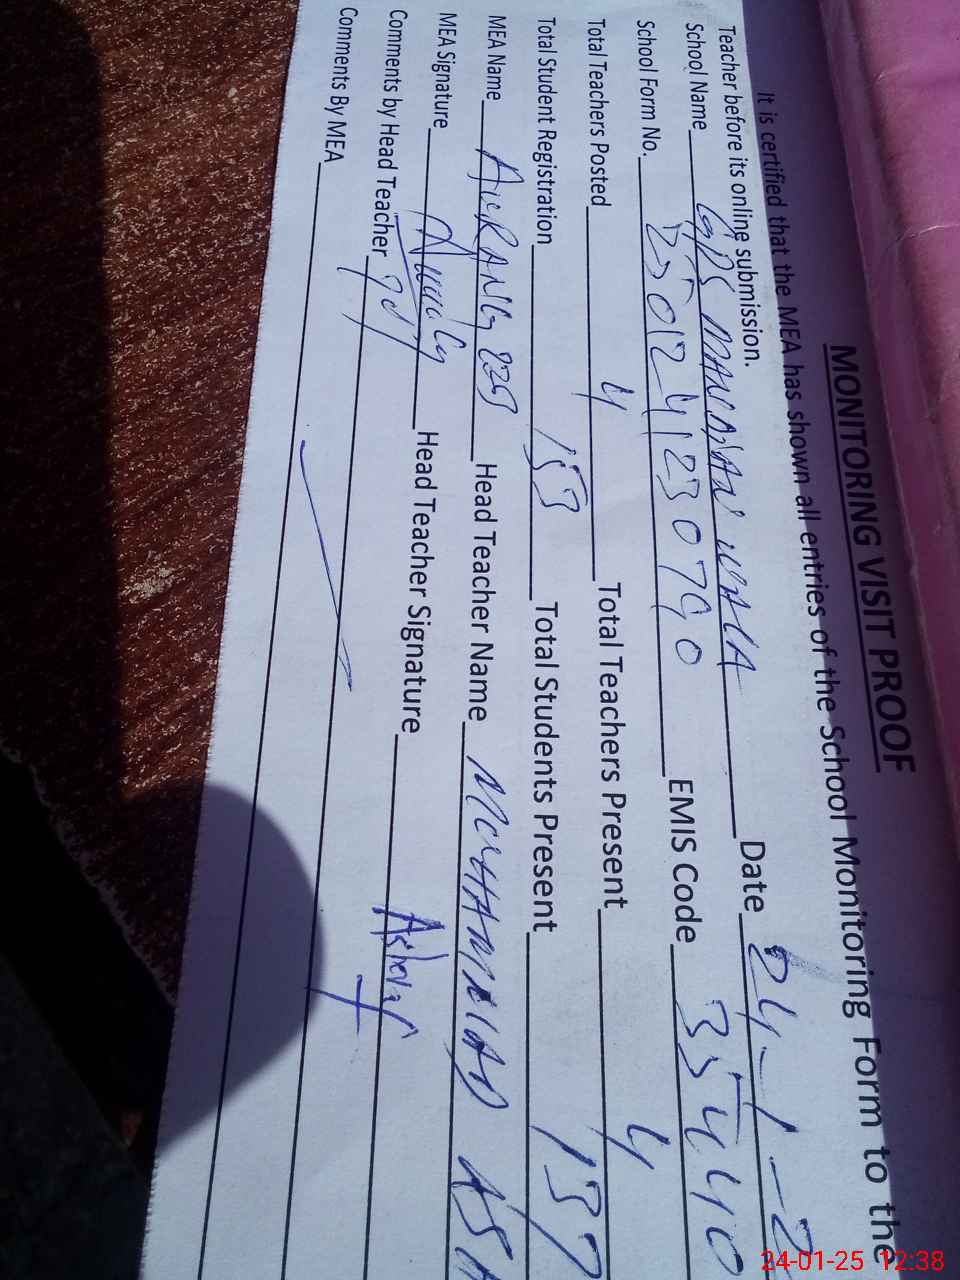 MONITORING VISIT PROOF
It is certified that the MEA has shown all entries of the School Monitoring Form to the
Teacher before its online submission.
School Name GPS Date 24-1-2
School Form No. 2501241230790 EMIS Code 35440
Total Teachers Posted 4 Total Teachers Present 4
Total Student Registration 153 Total Students Present 137
MEA Name Head Teacher Name MUHAMMAD
MEA Signature Head Teacher Signature Ashraf
Comments by Head Teacher
Comments By MEA
24-01-25 12:38